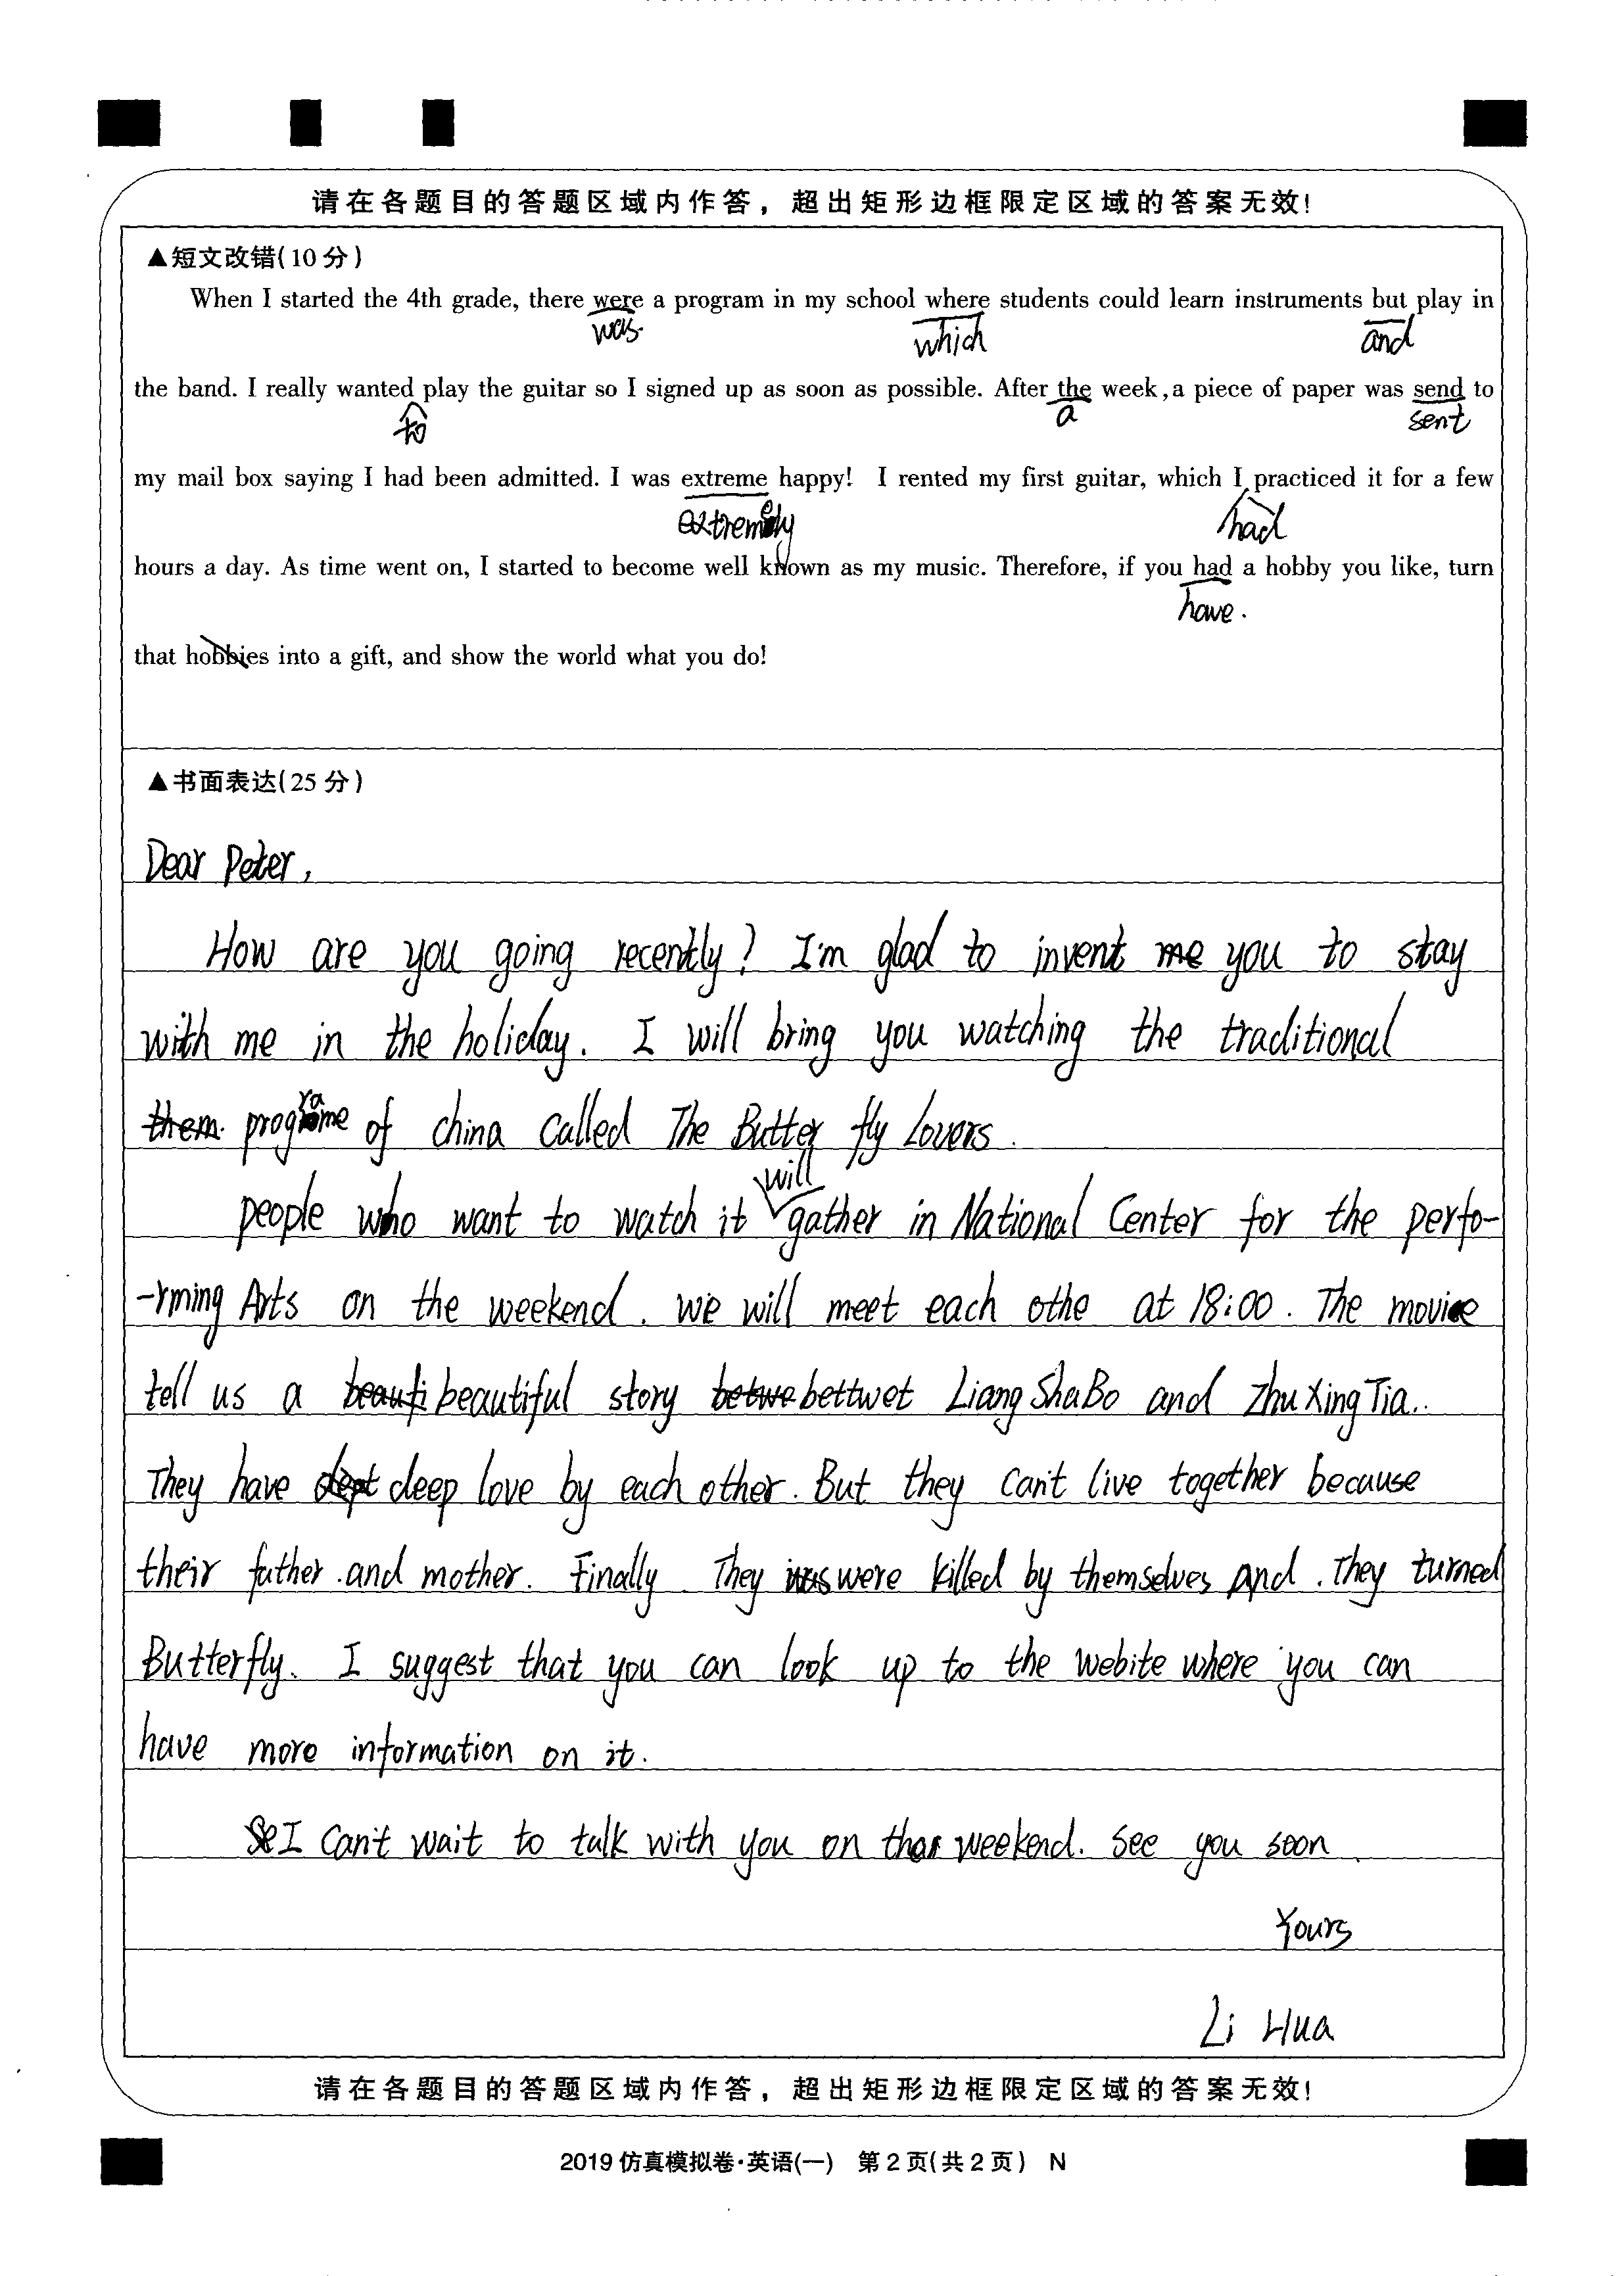 请在各题目的答题区域内作答，超出矩形边框限定区域的答案无效!
▲短文改错(10分)
When I started the 4th grade, there were a program in my school where students could learn instruments but play in
was. which and
the band. I really wanted play the guitar so I signed up as soon as possible. After the week, a piece of paper was send to
to a sent
my mail box saying I had been admitted. I was extreme happy! I rented my first guitar, which I practiced it for a few
extremely had
hours a day. As time went on, I started to become well known as my music. Therefore, if you had a hobby you like, turn
have.
that hobbies into a gift, and show the world what you do!
▲书面表达(25分)
Dear Peter,
How are you going recently? I'm glad to invent me you to stay
with me in the holiday. I will bring you watching the traditional
them. programe of china called The Butter fly Lovers.
will
people who want to watch it gather in National Center for the perfo-
-rming Arts on the weekend. we will meet each othe at 18:00. The movie
tell us a beauti beautiful story betwe bettwet Liang ShaBo and Zhu Xing Tia..
They have dept deep love by each other. But they can't live together because
their father and mother. Finally They was were killed by themselves And. They turned
Butterfly. I suggest that you can look up to the webite where you can
have more information on it.
Se I can't wait to talk with you on weekend. See you soon.
Yours
Li Hua
请在各题目的答题区域内作答，超出矩形边框限定区域的答案无效!
2019仿真模拟卷·英语(一) 第2页(共2页) N